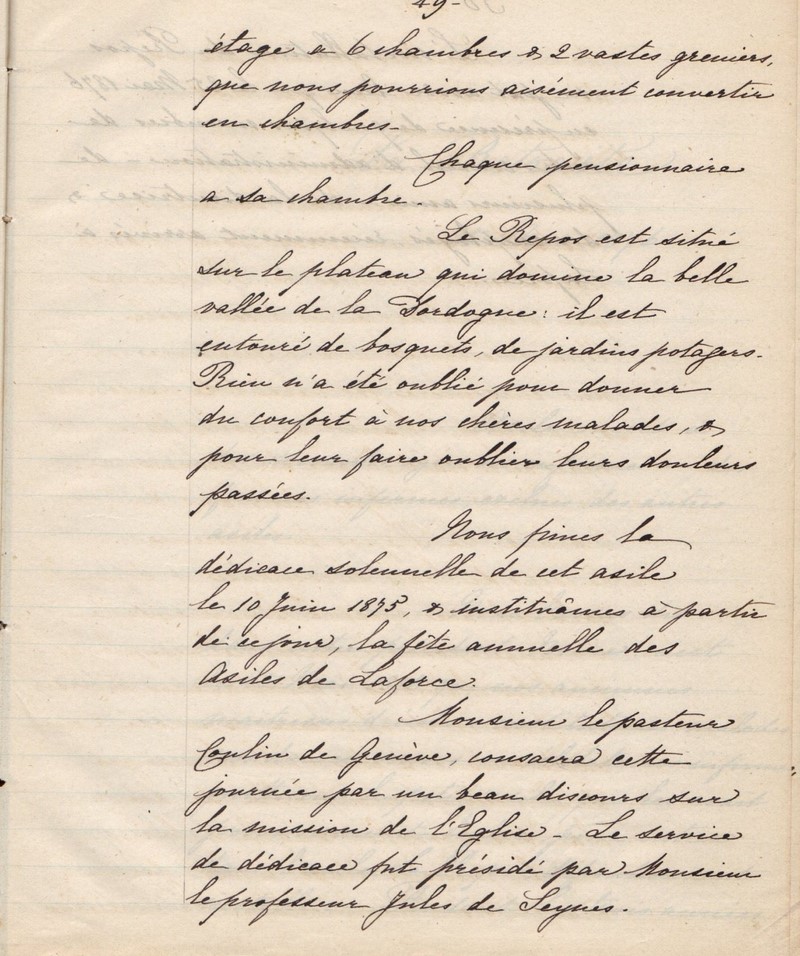 49-
étage a 6 chambres & 2 vastes greniers,
que nous pourrions aisément convertir
en chambres-
Chaque pensionnaire
a sa chambre.
Le Repos est situé
sur le plateau qui domine la belle
vallée de la Dordogne: il est
entouré de bosquets, de jardins potagers-
Rien n'a été oublié pour donner
du confort à nos chères malades, &
pour leur faire oublier leurs douleurs
passées.
Nous fimes la
dédicace solennelle de cet asile
le 10 Juin 1875, & instituâmes à partir
de ce jour, la fête annuelle des
Asiles de Laforce.
Monsieur le pasteur
Coulin de Genève, consacra cette
journée par un beau discours sur
la mission de l'Eglise- Le service
de dédicace fut présidé par Monsieur
le professeur Jules de Seynes.